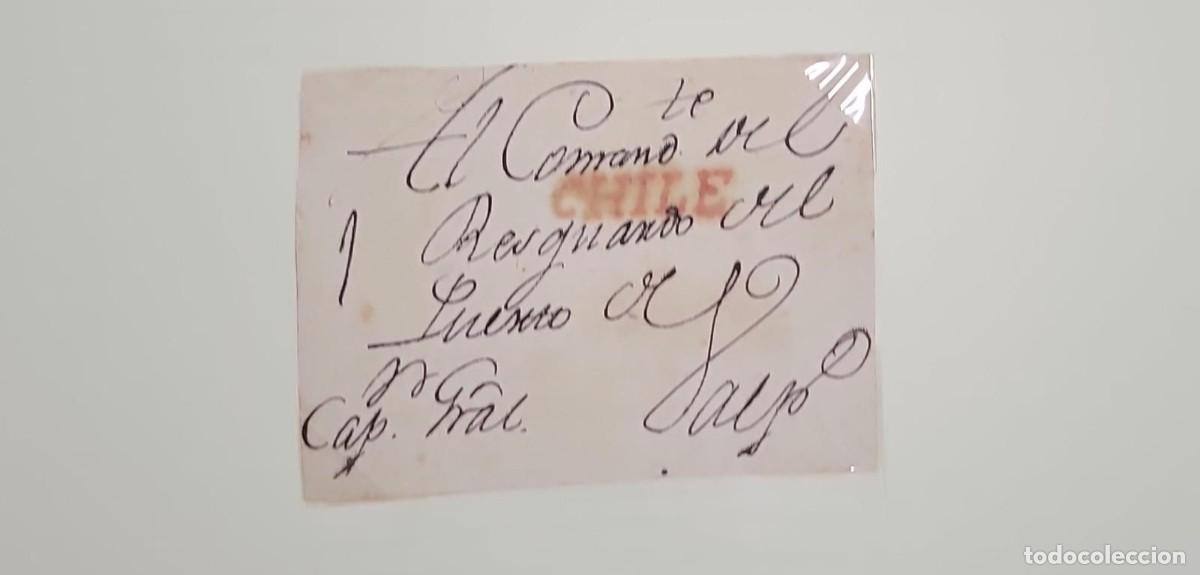 El Comand.te del
CHILE
1 Resguardo del
Puerto de
Valpo
Cap. Gral.
todocoleccion